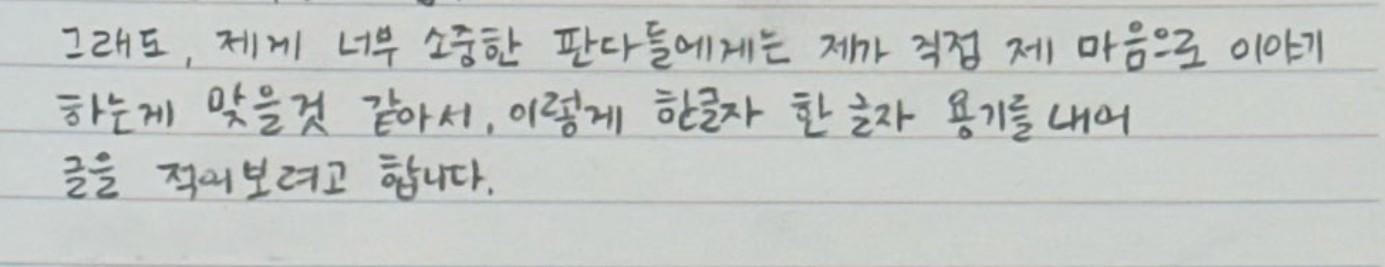 그래도, 제게 너무 소중한 판다들에게는 제가 직접 제 마음으로 이야기
하는게 맞을것 같아서, 이렇게 한글자 한 글자 용기를 내어
글을 적어보려고 합니다.